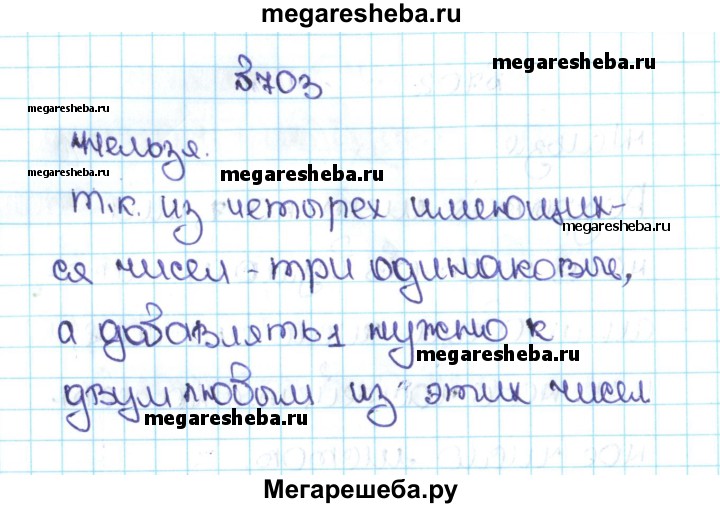 megaresheba.ru
№703
megaresheba.ru
megaresheba.ru
Нельзя.
megaresheba.ru
megaresheba.ru
т.к. из четырех имеющих-
megaresheba.ru
ся чисел - три одинаковые,
а добавлять 1 нужно к
megaresheba.ru
двум любым из этих чисел
megaresheba.ru
Мегарешеба.ру